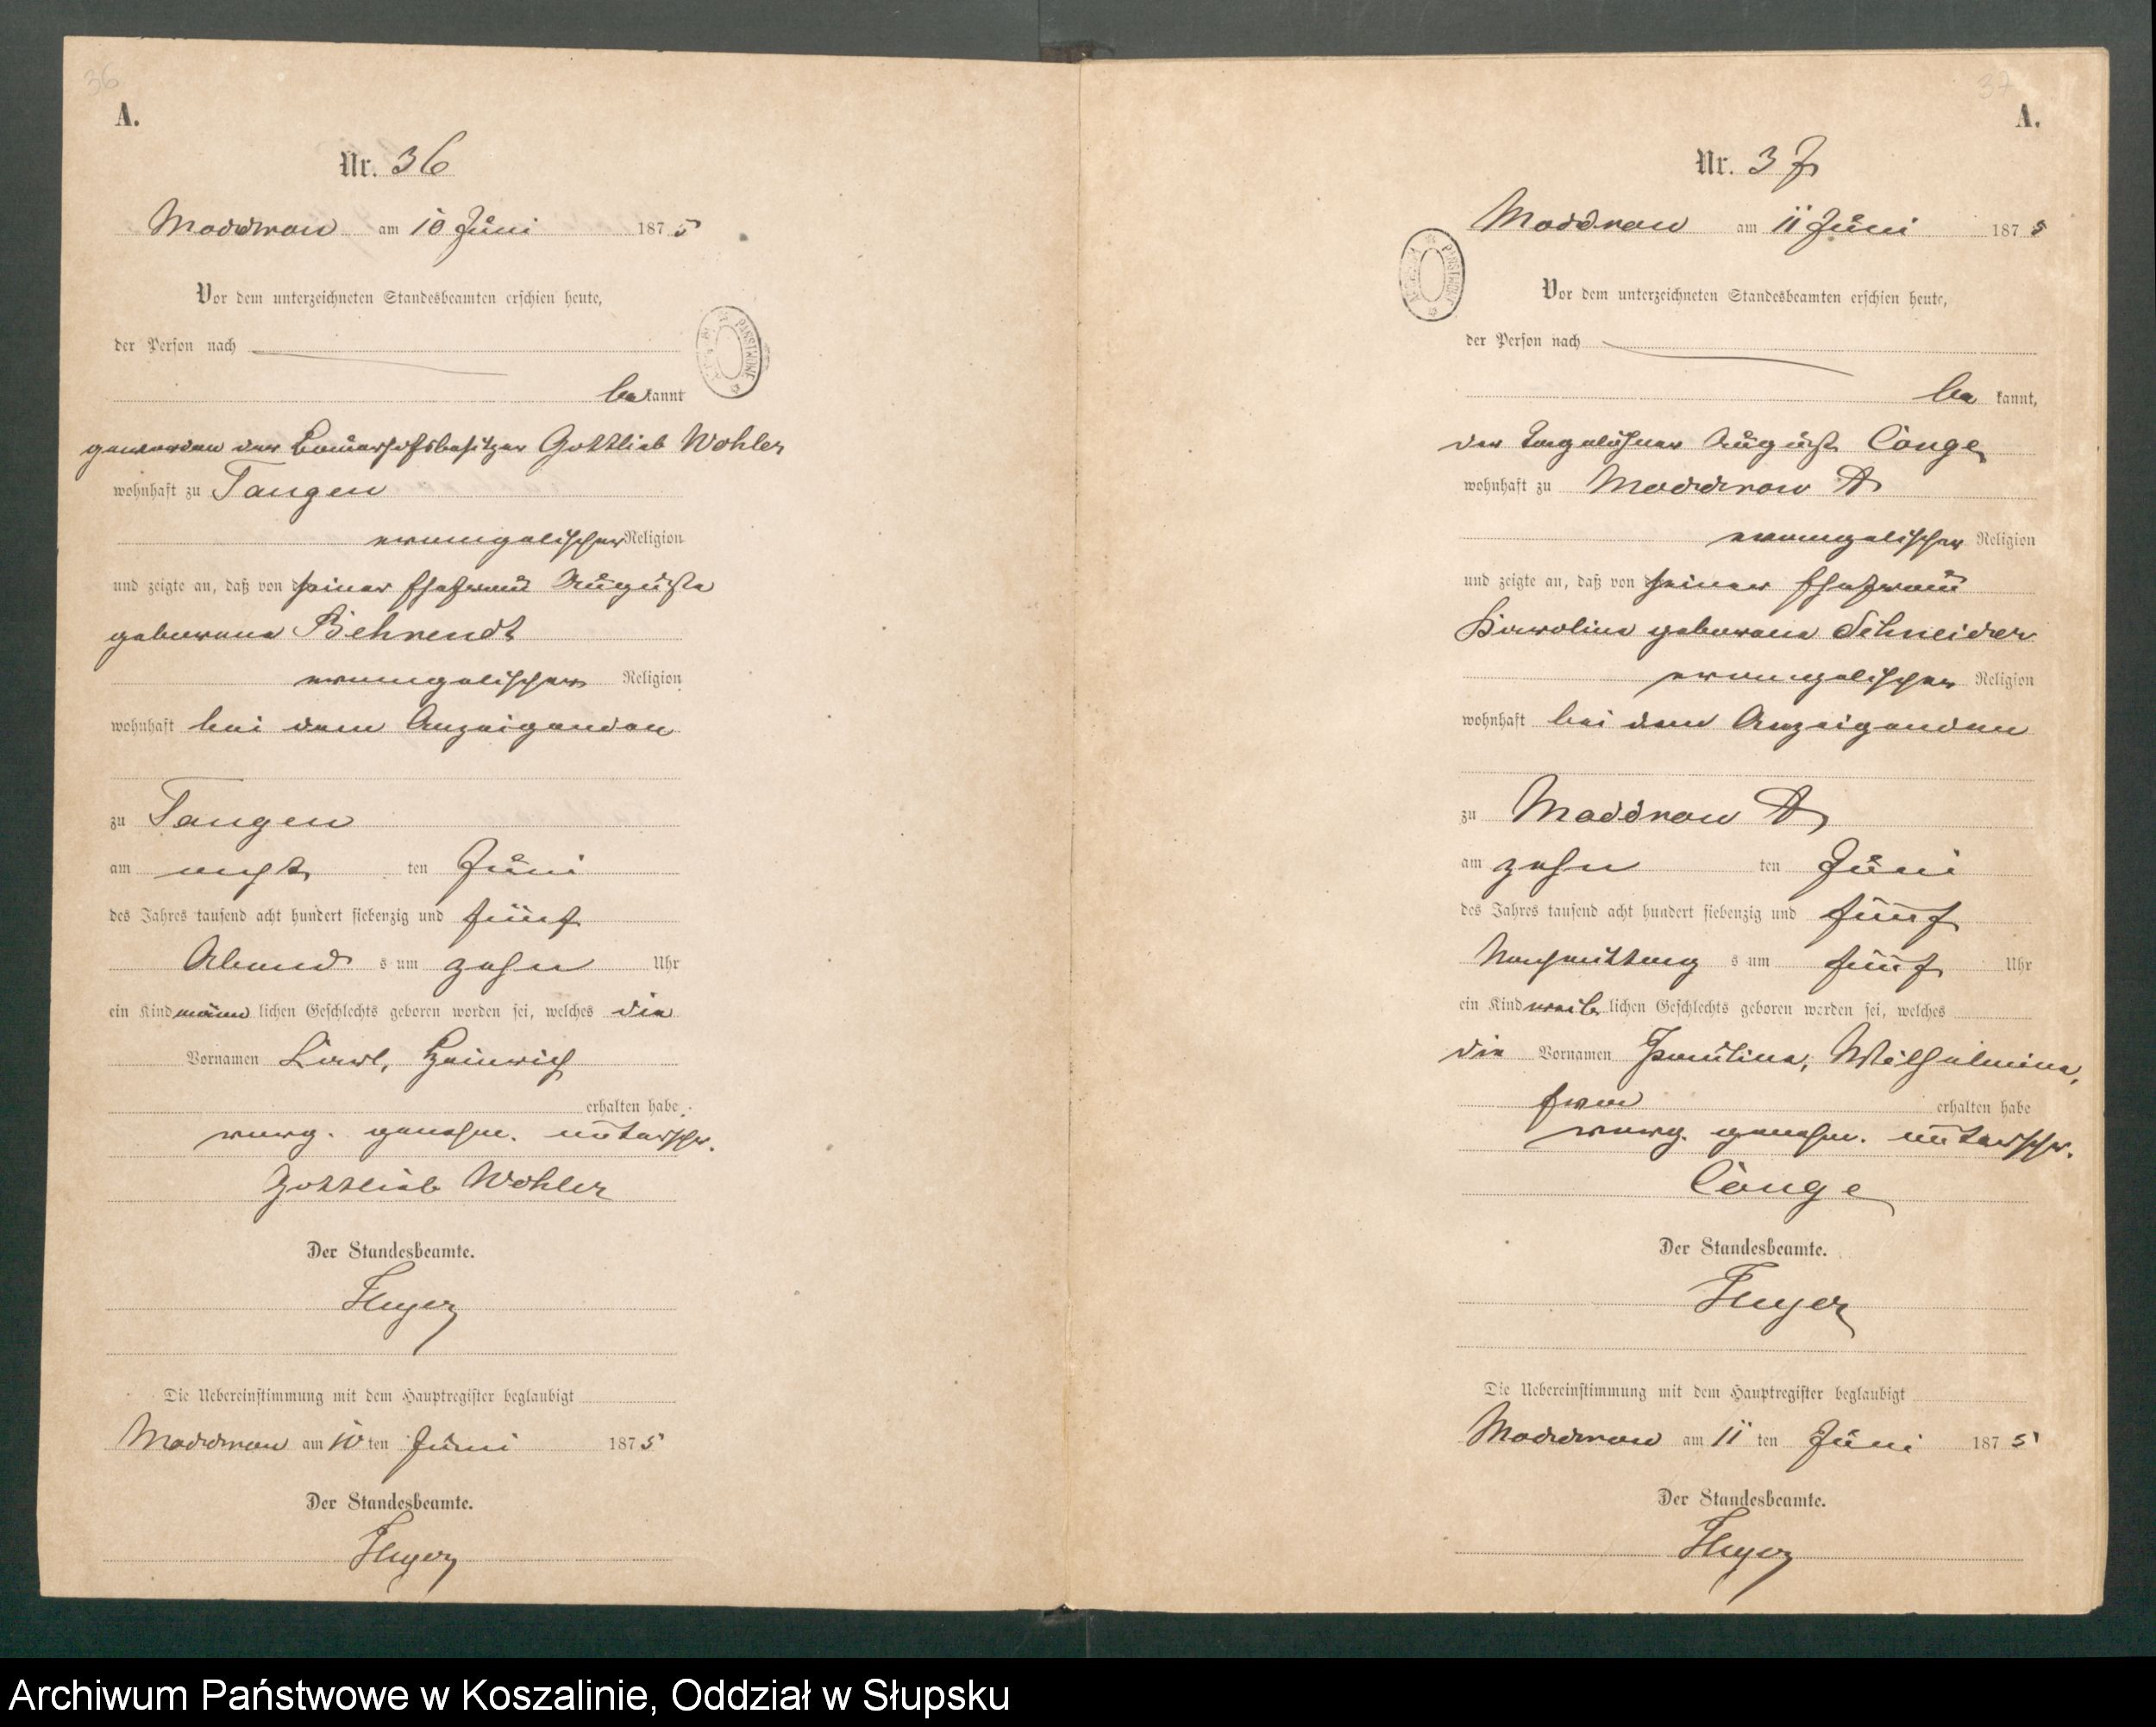 36
A.
Nr. 36
Moddrow am 10 Juni 1875
Vor dem unterzeichneten Standesbeamten erschien heute,
der Person nach
bekannt
geworden der Bauerhofsbesitzer Gottlieb Wohler
wohnhaft zu Tangen
evangelischer Religion
und zeigte an, daß von seiner Ehefrau Auguste
geborene Behrendt
evangelischer Religion
wohnhaft bei dem Anzeigenden
zu Tangen
am acht ten Juni
des Jahres tausend acht hundert siebenzig und fünf
Abends um zehn Uhr
ein Kind männlichen Geschlechts geboren worden sei, welches die
Vornamen Karl, Heinrich
erhalten habe.
vorg. genehm. unterschr.
Gottlieb Wohler
Der Standesbeamte.
Die Uebereinstimmung mit dem Hauptregister beglaubigt
Moddrow am 10ten Juni 1875
Der Standesbeamte.
37
A.
Nr. 37
Moddrow am 11 Juni 1875
PAŃSTWOWE
Vor dem unterzeichneten Standesbeamten erschien heute,
der Person nach
bekannt,
der Tagelöhner August Conge
wohnhaft zu Moddrow A
evangelischer Religion
und zeigte an, daß von seiner Ehefrau
Karoline geborene Schneider
evangelischer Religion
wohnhaft bei dem Anzeigenden
zu Moddrow A
am zehn ten Juni
des Jahres tausend acht hundert siebenzig und fünf
Nachmittags um fünf Uhr
ein Kind weiblichen Geschlechts geboren worden sei, welches
die Vornamen Pauline, Wilhelmine,
erhalten habe
vorg. genehm. unterschr.
Conge
Der Standesbeamte.
Die Uebereinstimmung mit dem Hauptregister beglaubigt
Moddrow am 11 ten Juni 1875
Der Standesbeamte.
Archiwum Państwowe w Koszalinie, Oddział w Słupsku